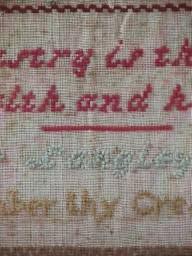 stry is th
ith and h
Langley
ber thy Cre